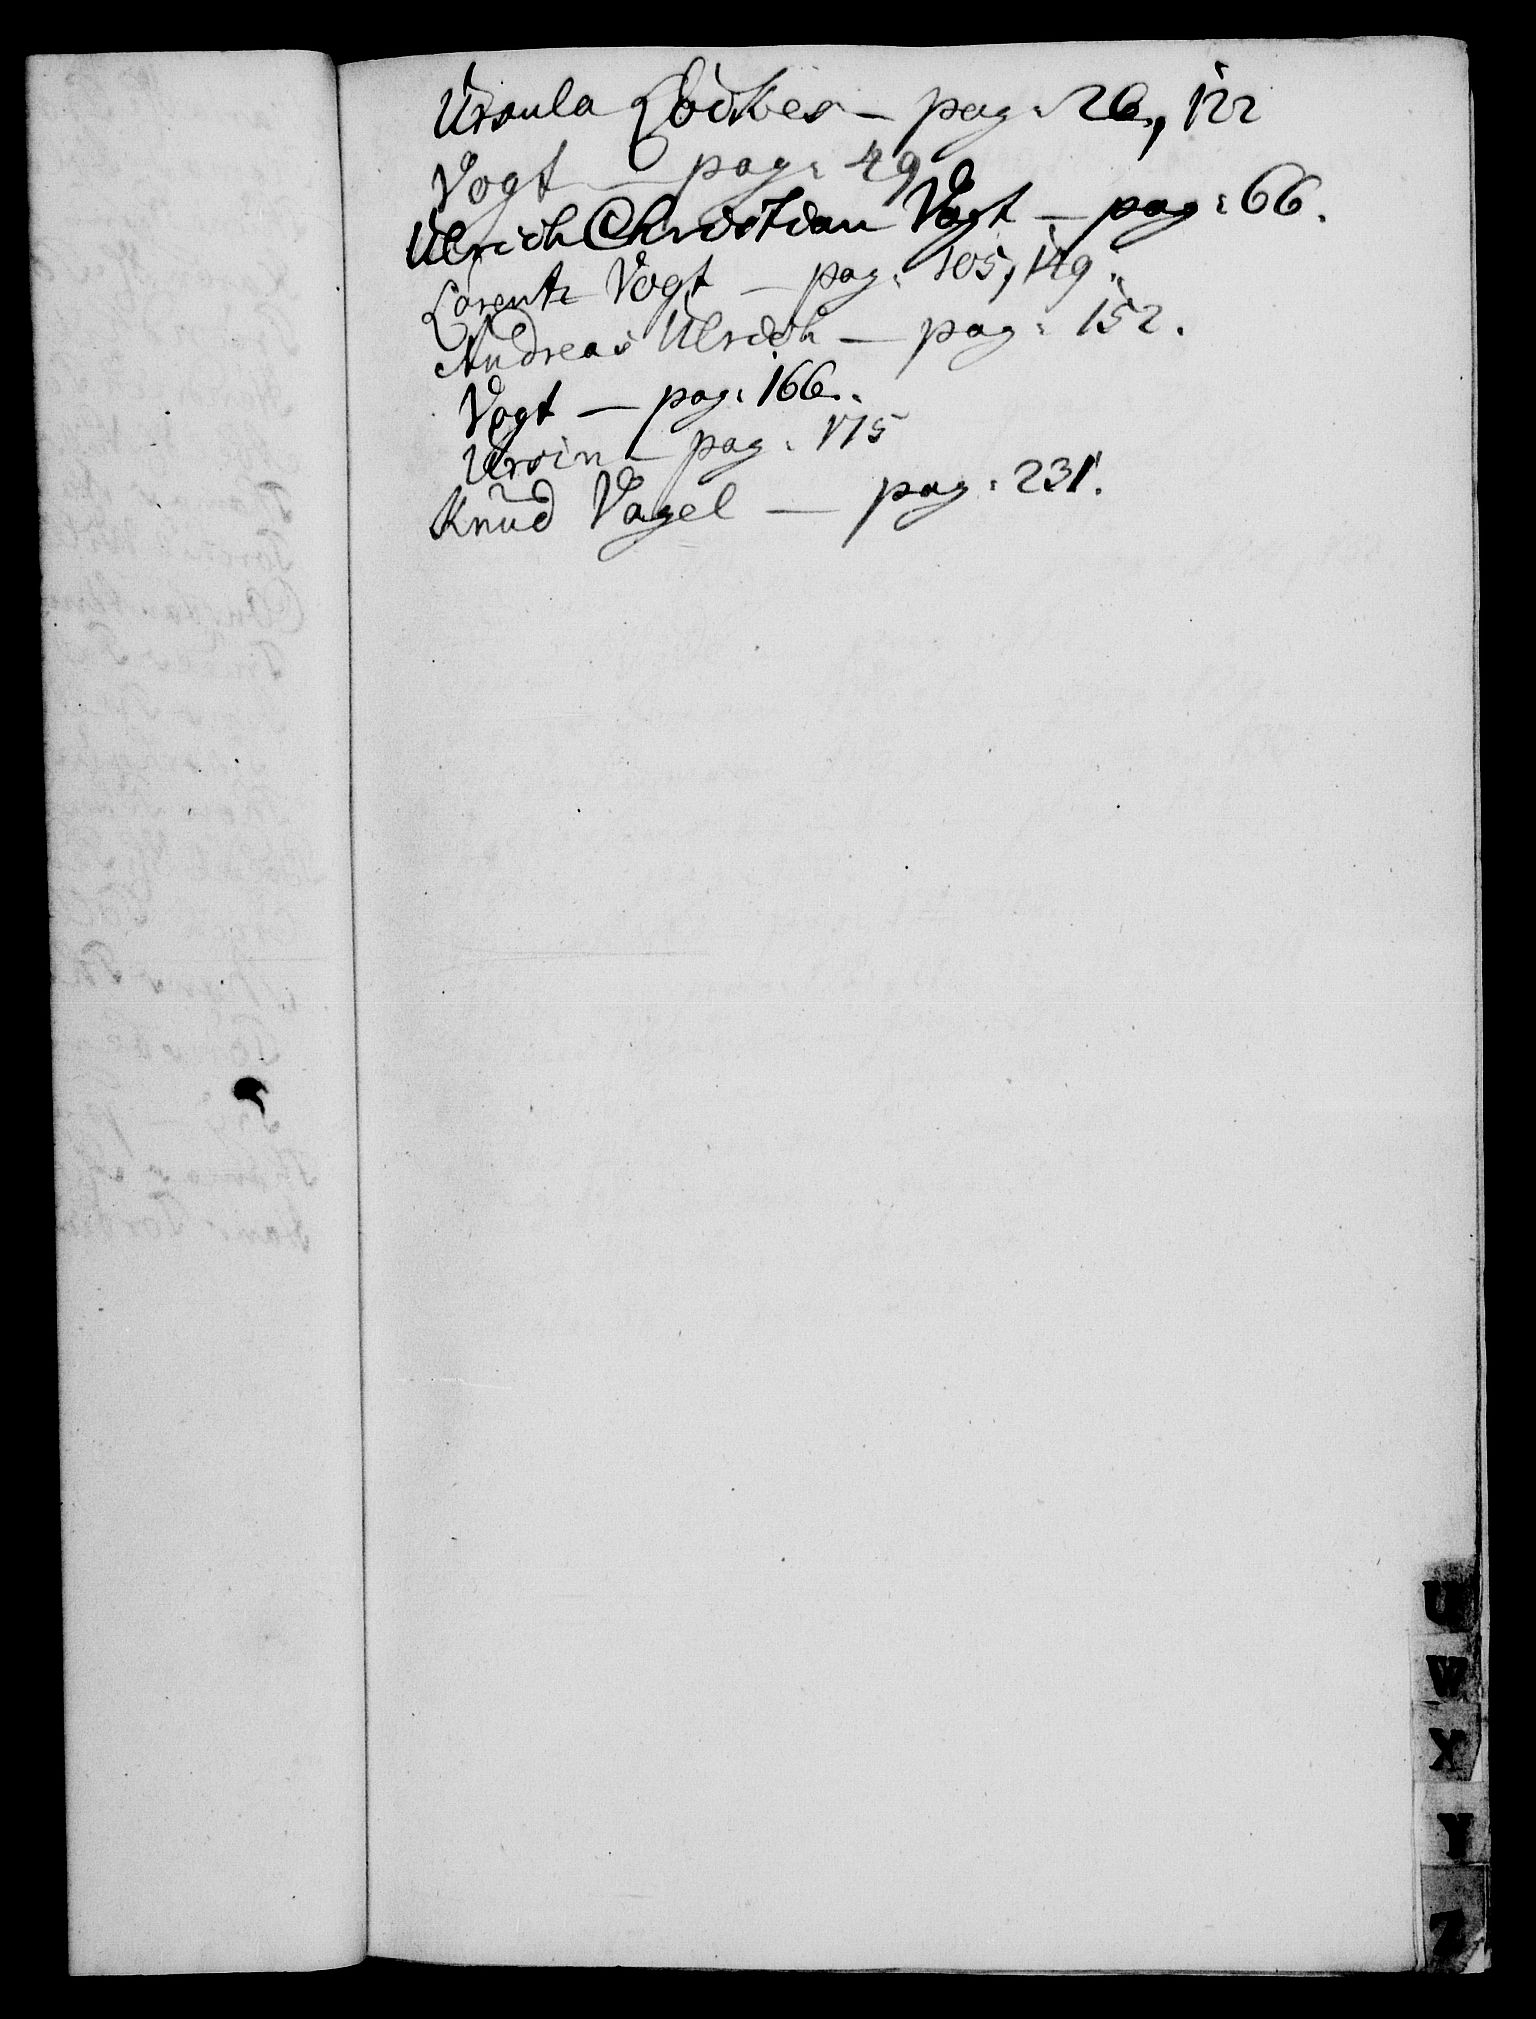 Ursula Lödkes — pag: 26, 122
Vogt — pag: 49
Ulrich Christian Vogt — pag: 66.
Lorentz Vogt — pag: 105, 149.
Andreas Ulrich — pag: 152.
Vogt — pag: 166.
Ursin — pag: 175
Knud Vagel — pag: 231.
U
W
X
Y
Z